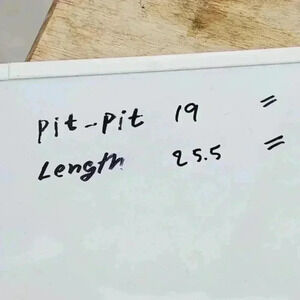 pit-pit 19 =
Length 25.5 =